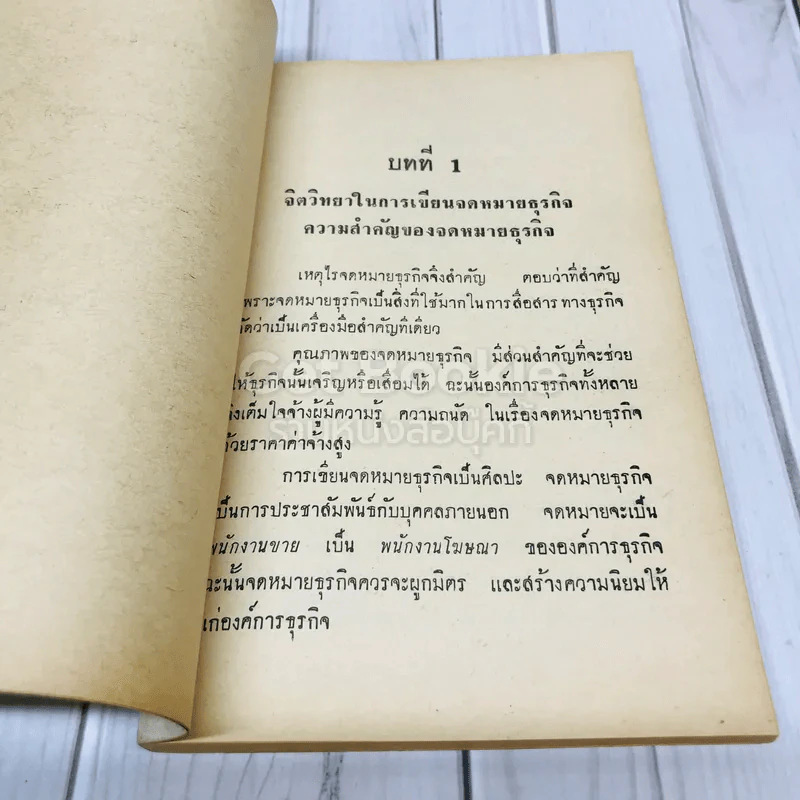 บทที่ 1
จิตวิทยาในการเขียนจดหมายธุรกิจ
ความสำคัญของจดหมายธุรกิจ
เหตุไรจดหมายธุรกิจจึงสำคัญ ตอบว่าที่สำคัญ
เพราะจดหมายธุรกิจเป็นสิ่งที่ใช้มากในการสื่อสารทางธุรกิจ
จัดว่าเป็นเครื่องมือสำคัญทีเดียว
คุณภาพของจดหมายธุรกิจ มีส่วนสำคัญที่จะช่วย
ให้ธุรกิจนั้นเจริญหรือเสื่อมได้ ฉะนั้นองค์การธุรกิจทั้งหลาย
จึงเต็มใจจ้างผู้มีความรู้ ความถนัด ในเรื่องจดหมายธุรกิจ
ด้วยราคาค่าจ้างสูง
Get Bookie
ร้านหนังสือบุ๊คกี้
การเขียนจดหมายธุรกิจเป็นศิลปะ จดหมายธุรกิจ
เป็นการประชาสัมพันธ์กับบุคคลภายนอก จดหมายจะเป็น
พนักงานขาย เป็น พนักงานโฆษณา ขององค์การธุรกิจ
ฉะนั้นจดหมายธุรกิจควรจะผูกมิตร และสร้างความนิยมให้
แก่องค์การธุรกิจ